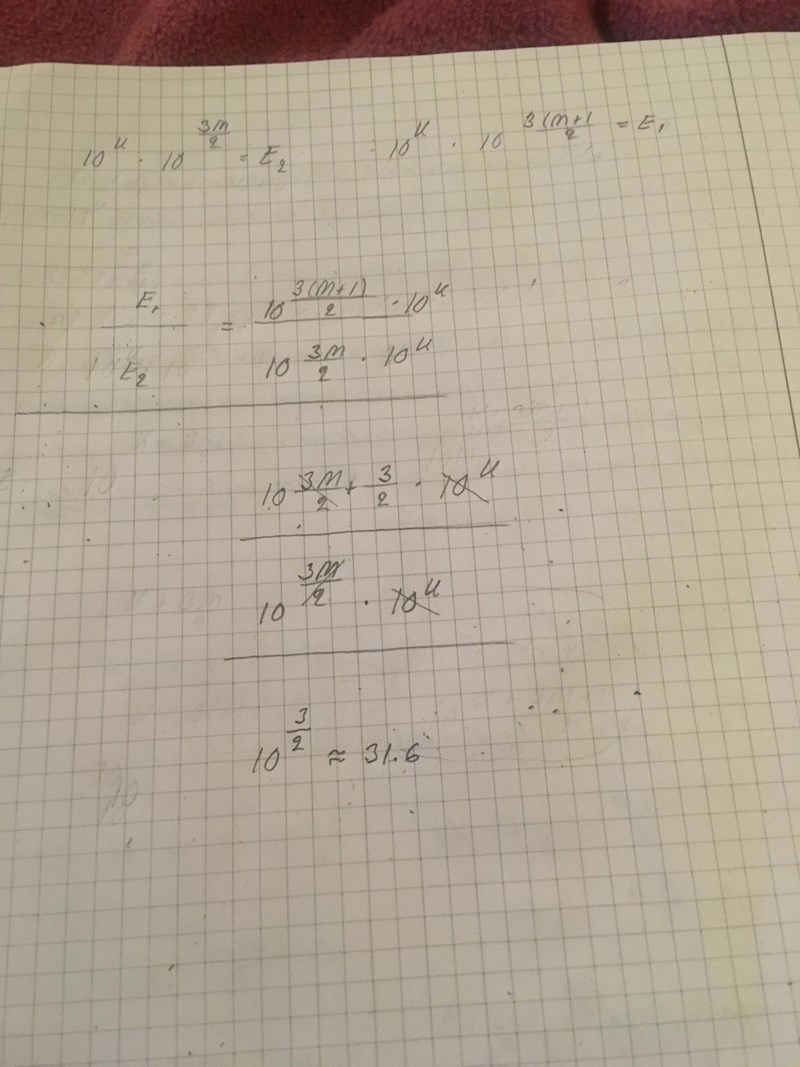 10^K · 10^(3M/2) = E₂    10^K · 10^(3(M+1/2) = E₁
E₁/E₂ = (10^(3(M+1)/2) · 10^K)/(10^(3M/2) · 10^K)
10^(3M/2 + 3/2) · 10^K
10^(3M/2) · 10^K
10^(3/2) ≈ 31.6